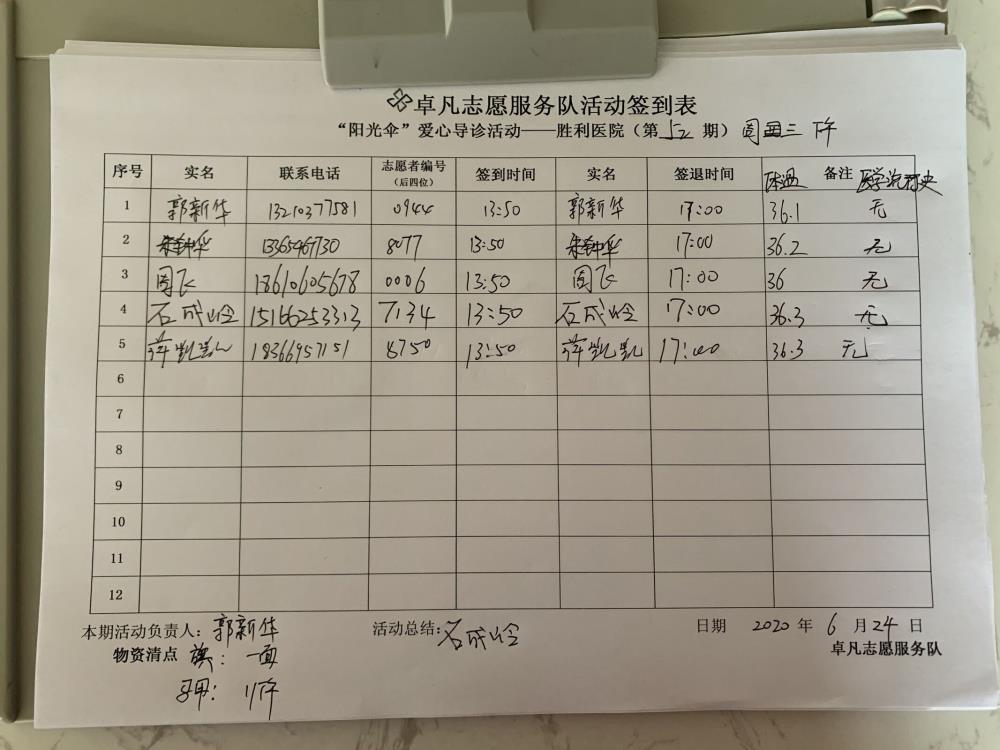 卓凡志愿服务队活动签到表
“阳光伞”爱心导诊活动——胜利医院（第 52 期） 周三 下午
序号 实名 联系电话 志愿者编号（后四位） 签到时间 实名 签退时间 体温 备注 医学流行史
1 郭新华 13210377581 0944 13:50 郭新华 17:00 36.1 无
2 8077 13:50 17:00 36.2 无
3 周飞 18610605678 0006 13:50 周飞 17:00 36 无
4 石成岭 15166253313 7134 13:50 石成岭 17:00 36.3 无
5 蒋凯凯 18366957151 8750 13:50 蒋凯凯 17:00 36.3 无
6
7
8
9
10
11
12
本期活动负责人：郭新华 活动总结：石成岭 日期 2020 年 6 月 24 日
物资清点 旗：一面 卓凡志愿服务队
马甲：11件